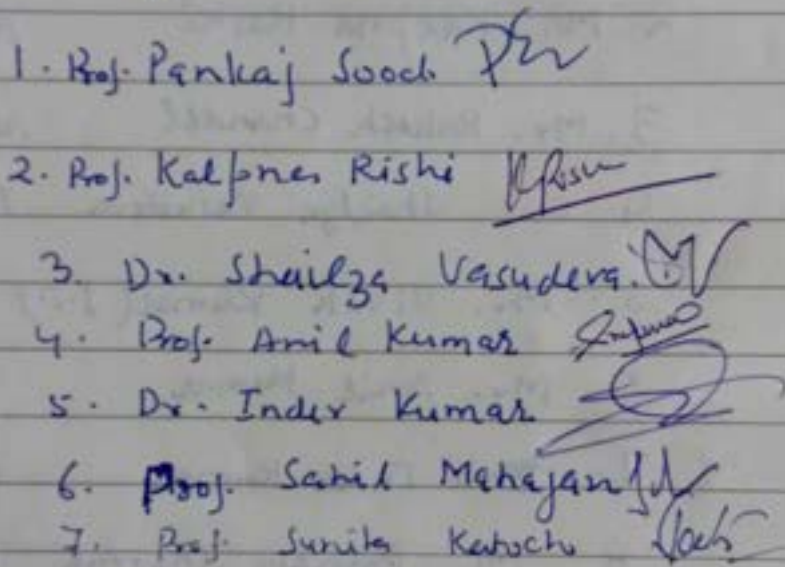 1. Prof. Pankaj Sood
2. Prof. Kalpna Rishi
3. Dr. Shailza Vasudeva.
4. Prof. Anil Kumar
5. Dr. Inder Kumar
6. Prof. Sahil Mahajan
7. Prof. Sunita Katoch